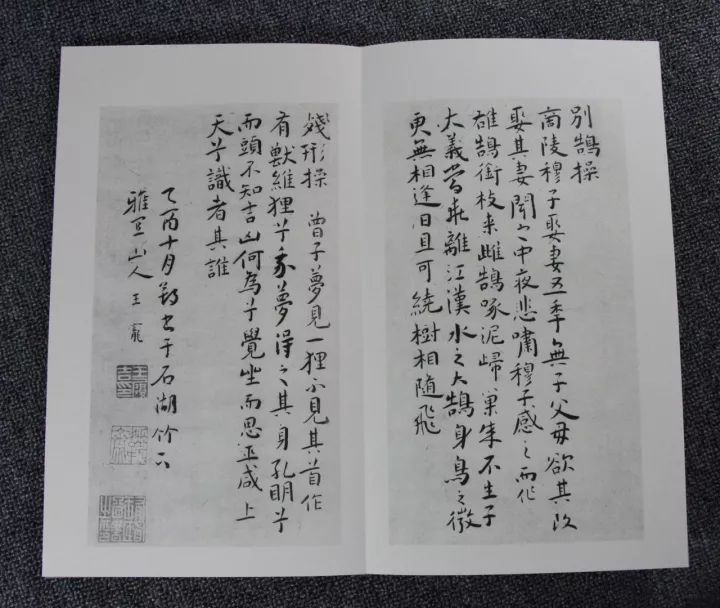 別鵠操
商陵穆子娶妻五年無子父母欲其改
娶其妻聞之中夜悲嘯穆子感之而作
雄鵠銜枝来雌鵠啄泥歸巢成不生子
大義當乖離江漢水之大鵠身鳥之微
更無相逢日且可繞樹相隨飛
殘形操 曾子夢見一狸不見其首作
有獸維狸兮我夢得之其身孔明兮
而頭不知吉凶何為兮覺坐而思巫咸上
天兮識者其誰
乙酉十月朔書于石湖竹下
雅宜山人王寵